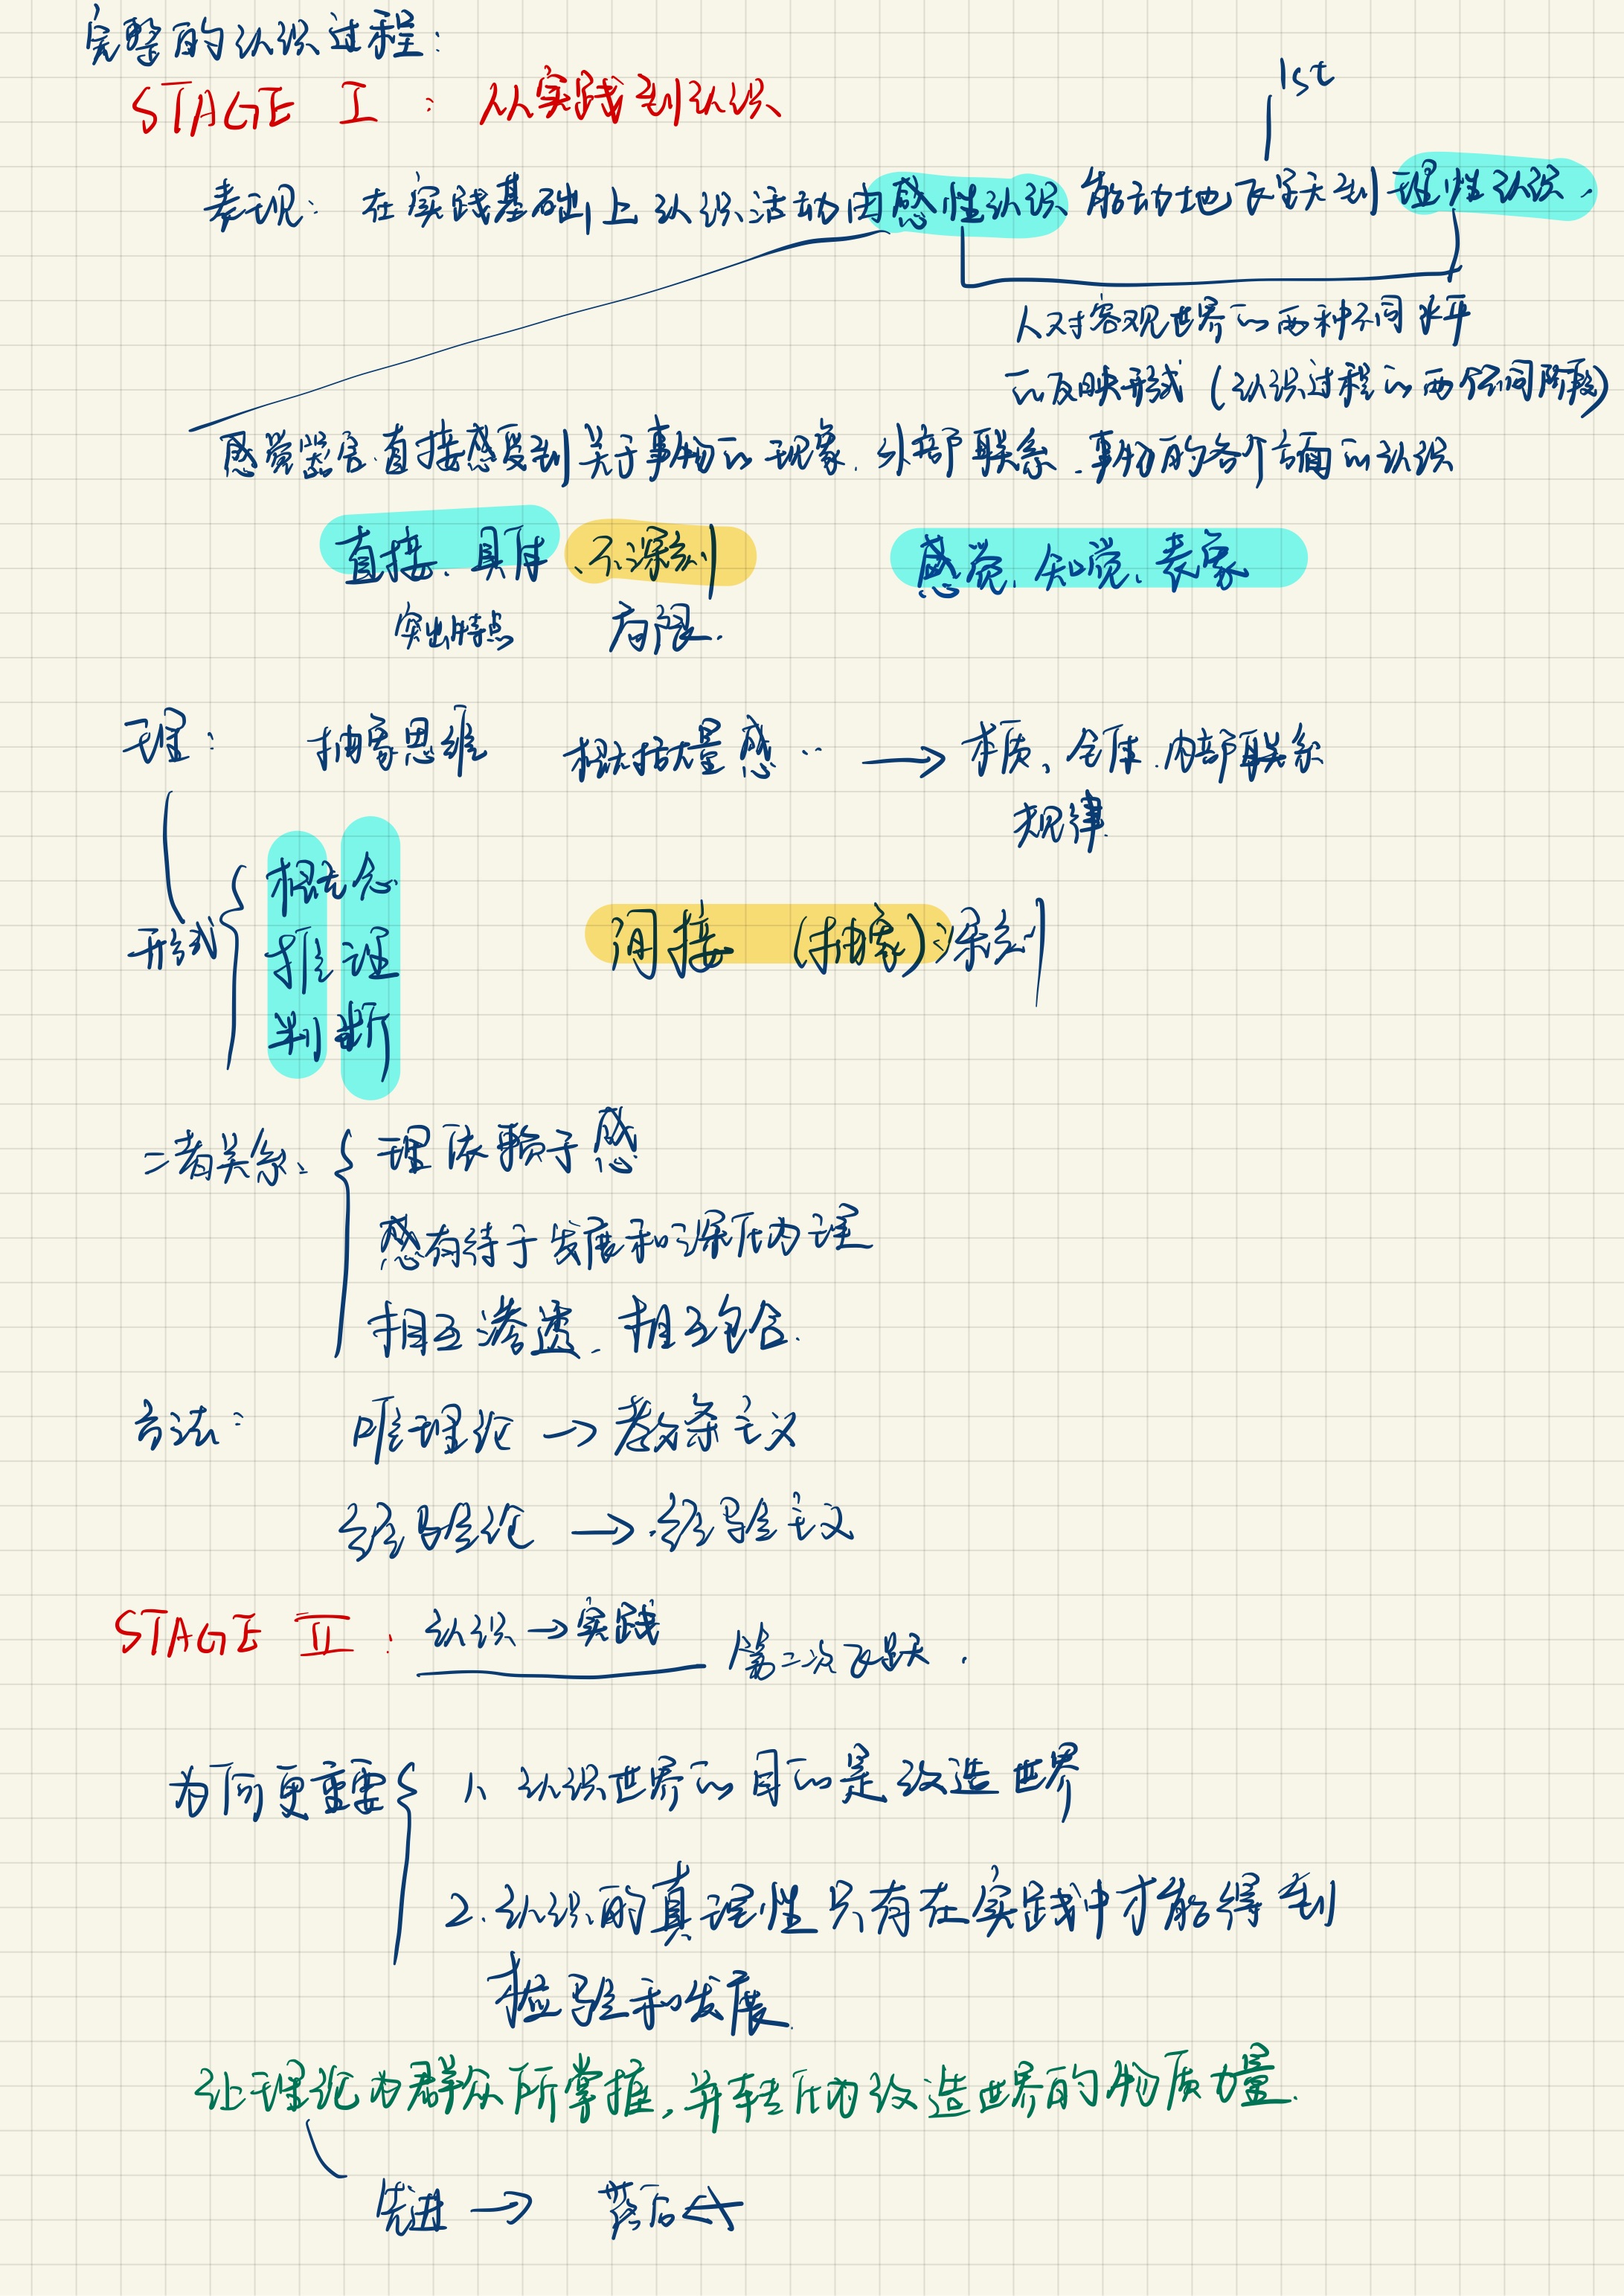 完整的认识过程：
STAGE I ： 从实践到认识
1st
表现： 在实践基础上认识活动由感性认识能动地飞跃到理性认识.
人对客观世界的两种不同水平
的反映形式（认识过程的两个不同阶段）
感觉器官直接感受到关于事物的现象、外部联系、事物的各个方面的认识
直接、具体、不深刻 感觉、知觉、表象
突出特点 有限.
理： 抽象思维 概括大量感… → 本质、全体、内部联系
规律.
形式 { 概念
推理 间接 （抽象）深刻
判断
二者关系、 { 理依赖于感
感有待于发展和深化为理
相互渗透、相互包含.
方法： 唯理论 → 教条主义
经验论 → 经验主义
STAGE II ： 认识→实践 第二次飞跃.
为何更重要 { 1、认识世界的目的是改造世界
2.认识的真理性只有在实践中才能得到
检验和发展.
让理论为群众所掌握，并转化为改造世界的物质力量.
先进 → 落后